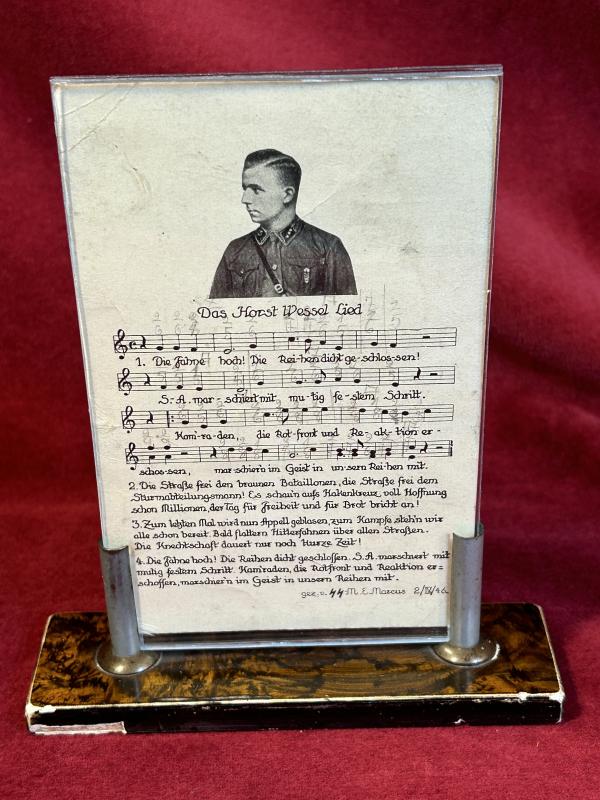 Das Horst Wessel Lied
1. Die Fahne hoch! Die Rei-hen dicht ge-schlos-sen!
S.A. mar-schiert mit mu-tig fe-stem Schritt.
Kam'ra-den, die Rot-front und Re-ak-tion er-
schos-sen, mar-schier'n im Geist in un-sern Rei-hen mit.
2. Die Straße frei den braunen Bataillonen, die Straße frei dem
Sturmabteilungsmann! Es schau'n aufs Hakenkreuz, voll Hoffnung
schon Millionen, der Tag für Freiheit und für Brot bricht an!
3. Zum letzten Mal wird nun Appell geblasen, zum Kampfe steh'n wir
alle schon bereit. Bald flattern Hitlerfahnen über allen Straßen.
Die Knechtschaft dauert nur noch kurze Zeit!
4. Die Fahne hoch! Die Reihen dicht geschlossen. S.A. marschiert mit
mutig festem Schritt. Kam'raden, die Rotfront und Reaktion er=
schossen, marschier'n im Geist in unsern Reihen mit.
gez. v. SS-M. E. Marcus